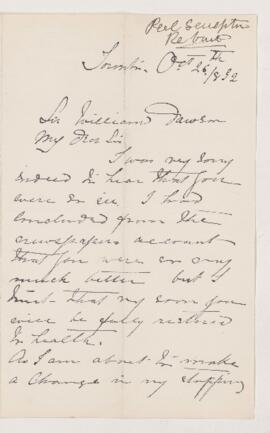 Peel Sculptor
Re bust
Toronto Oct 26th/892
Sir William Dawson
My Dear Sir
I was very sorry
indeed to hear that you
were so ill I had
concluded from the
newspapers account
that you were so very
much better but I
trust that very soon you
will be fully restored
to health.
As I am about to make
a change in my stopping